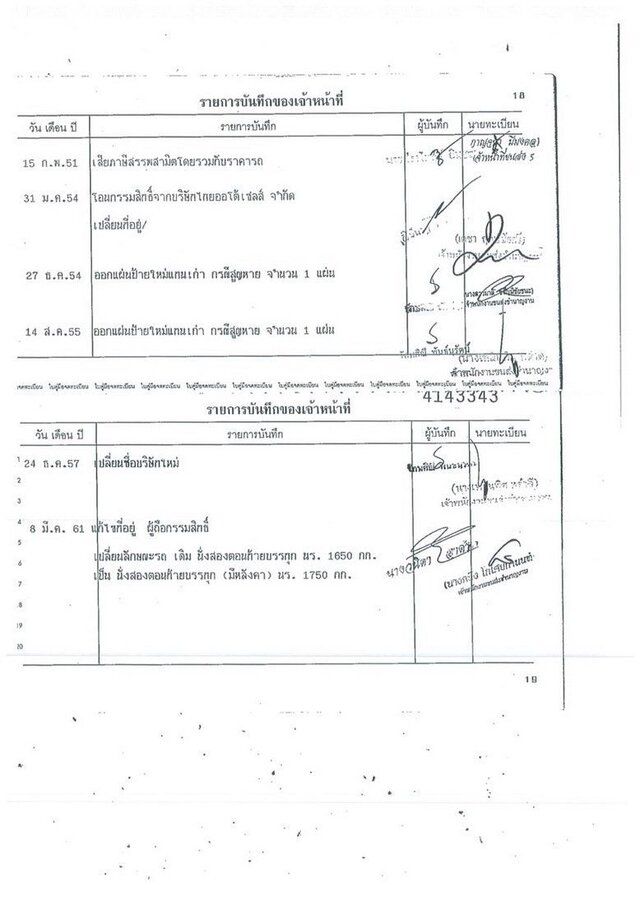 18
รายการบันทึกของเจ้าหน้าที่
วัน เดือน ปี รายการบันทึก ผู้บันทึก นายทะเบียน
15 ก.พ.51 เสียภาษีสรรพสามิตโดยรวมกับราคารถ
เจ้าหน้าที่ขนส่ง 5
31 ม.ค.54 โอนกรรมสิทธิ์จากบริษัทไทยออโต้เซลส์ จำกัด
เปลี่ยนที่อยู่/
27 ธ.ค.54 ออกแผ่นป้ายใหม่แทนเก่า กรณีสูญหาย จำนวน 1 แผ่น
เจ้าพนักงานขนส่งชำนาญงาน
14 ส.ค.55 ออกแผ่นป้ายใหม่แทนเก่า กรณีสูญหาย จำนวน 1 แผ่น
เจ้าพนักงานขนส่งชำนาญงาน
ใบคู่มือจดทะเบียน ใบคู่มือจดทะเบียน ใบคู่มือจดทะเบียน ใบคู่มือจดทะเบียน ใบคู่มือจดทะเบียน ใบคู่มือจดทะเบียน ใบคู่มือจดทะเบียน ใบคู่มือจดทะเบียน ใบคู่มือจดทะเบียน ใบคู่มือจดทะเบียน
4143343
รายการบันทึกของเจ้าหน้าที่
วัน เดือน ปี รายการบันทึก ผู้บันทึก นายทะเบียน
24 ธ.ค.57 เปลี่ยนชื่อบริษัทใหม่
8 มี.ค. 61 แก้ไขที่อยู่ ผู้ถือกรรมสิทธิ์
เปลี่ยนลักษณะรถ เดิม นั่งสองตอนท้ายบรรทุก นร. 1650 กก.
เป็น นั่งสองตอนท้ายบรรทุก (มีหลังคา) นร. 1750 กก.
เจ้าพนักงานขนส่งชำนาญงาน
19